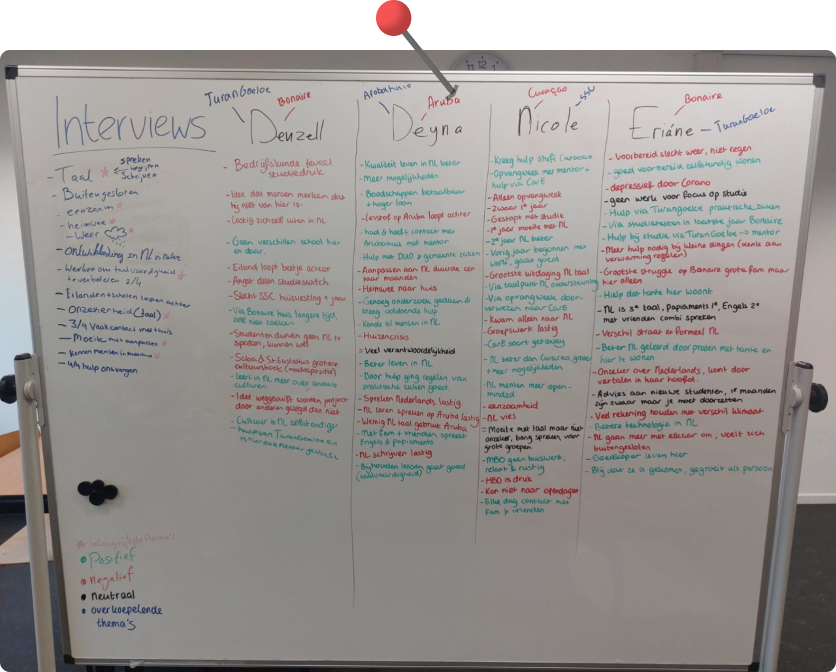 Interviews
- Taal * spreken
begrijpen
schrijven
- Buitengesloten *
- eenzaam *
- heimwee *
- Weer *
- ontwikkeling in NL is beter
- Werken aan taalvaardigheid
te verbeteren 2/4
- Eilanden scholen lopen achter
- Onzekerheid (taal) *
- 3/4 Vaak contact met thuis
- Moeite met aanpassen *
- Kennen mensen in
- 4/4 hulp ontvangen
* belangrijkste thema's
• Positief
• negatief
• neutraal
• overkoepelende
thema's
TuranGoeloe
Bonaire
Denzell
- Bedrijfskunde teveel
studiedruk
- Idee dat mensen merken dat
hij niet van hier is.
- Lastig zichzelf uiten in NL
- Geen verschillen school hier
en daar.
- Eiland loopt beetje achter
- Angst delen studieswitch
- Slecht SSC huisvesting 1 jaar
- Via Bonaire huis langere tijd,
zelf niet zoeken
- Studenten durven geen NL te
spreken, kunnen wel
- Saba & St Eustatius grotere
cultuurshock
- leert in NL meer over andere
culturen
- Idee weggestuft worden project
door anderen gezegd dan niet.
- Cultuur in NL zelfstandiger
hulp van TuranGoeloe en
Arubahuis
Aruba
Deyna
- Kwaliteit leven in NL beter
- Meer mogelijkheden
- Boodschappen betaalbaar
+ hoger loon
- Lesstof op Aruba loopt achter
- had & heeft contact met
Arubahuis met mentor
- Hulp met DUO & gemeente zaken
- Aanpassen aan NL duurde een
paar maanden
- Heimwee naar huis
- Genoeg onderzoek gedaan &
kreeg voldoende hulp
- Kende al mensen in NL
- Huizencrisis
= Veel verantwoordelijkheid
- Beter leven in NL
- Door hulp ging regelen van
praktische zaken goed.
- Spreken Nederlands lastig
- NL leren spreken op Aruba lastig
- Weinig NL taal gebruik Aruba
- Met fam + vrienden spreekt
Engels & papiamento
- NL schrijven lastig
- Bijhouden lessen gaat goed
(taalvaardigheid)
Curaçao
SSU
Nicole
- Kreeg hulp stufi Curacao
- Opvangweek met mentor =
hulp via CarE
- Alleen opvangweek
- Zwaar 1e jaar
- Gestopt met studie
- 1e jaar moeite met NL
- 2e jaar NL beter
- Vorig jaar begonnen met
werk, gaat goed
- Grootste uitdaging NL taal
- Via taalpunt NL ondersteuning
- Via opvangweek door-
verwezen naar CarE
- Kwam alleen naar NL
- Groepswerk lastig
- CarE soort getaway
- NL beter dan Curacao, groter
+ meer mogelijkheden
- NL mensen meer open-
minded
- eenzaamheid
- NL vies
= Moeite met taal maar niet
onzeker, bang spreken voor
grote groepen
- MBO geen huiswerk,
relaxt & rustig
- HBO is druk
- Kon niet naar opendagen
- Elke dag contact met
fam & vrienden
Bonaire
Eriane - TuranGoeloe
- Voorbereid slecht weer, niet regen
- goed voorbereid zelfstandig wonen
- depressief door Corona
- geen werk voor focus op studie
- Hulp via TuranGoeloe praktische zaken
- Via studiekeuzen in laatste jaar Bonaire
- Hulp bij studie via TuranGoeloe → mentor
- Meer hulp nodig bij kleine dingen (eenk aan
verwarming regelen)
- Grootste struggle op Bonaire grote fam maar
hier alleen
- Hielp dat tante hier woont
- NL is 3e taal, Papiaments 1e, Engels 2e
met vrienden combi spreken
- Verschil straat en formeel NL
- Beter NL geleerd door praten met tante en
hier te wonen
- Onzeker over Nederlands, komt door
vertalen in haar hoofd.
- Advies aan nieuwe studenten, 1e maanden
zijn zwaar maar je moet doorzetten
- Veel rekening houden met verschil klimaat
- Betere technologie in NL
- NL gaan meer met elkaar om, voelt zich
buitengesloten
- Goedkoper leven hier
- Blij dat ze is gekomen, gegroeit als persoon